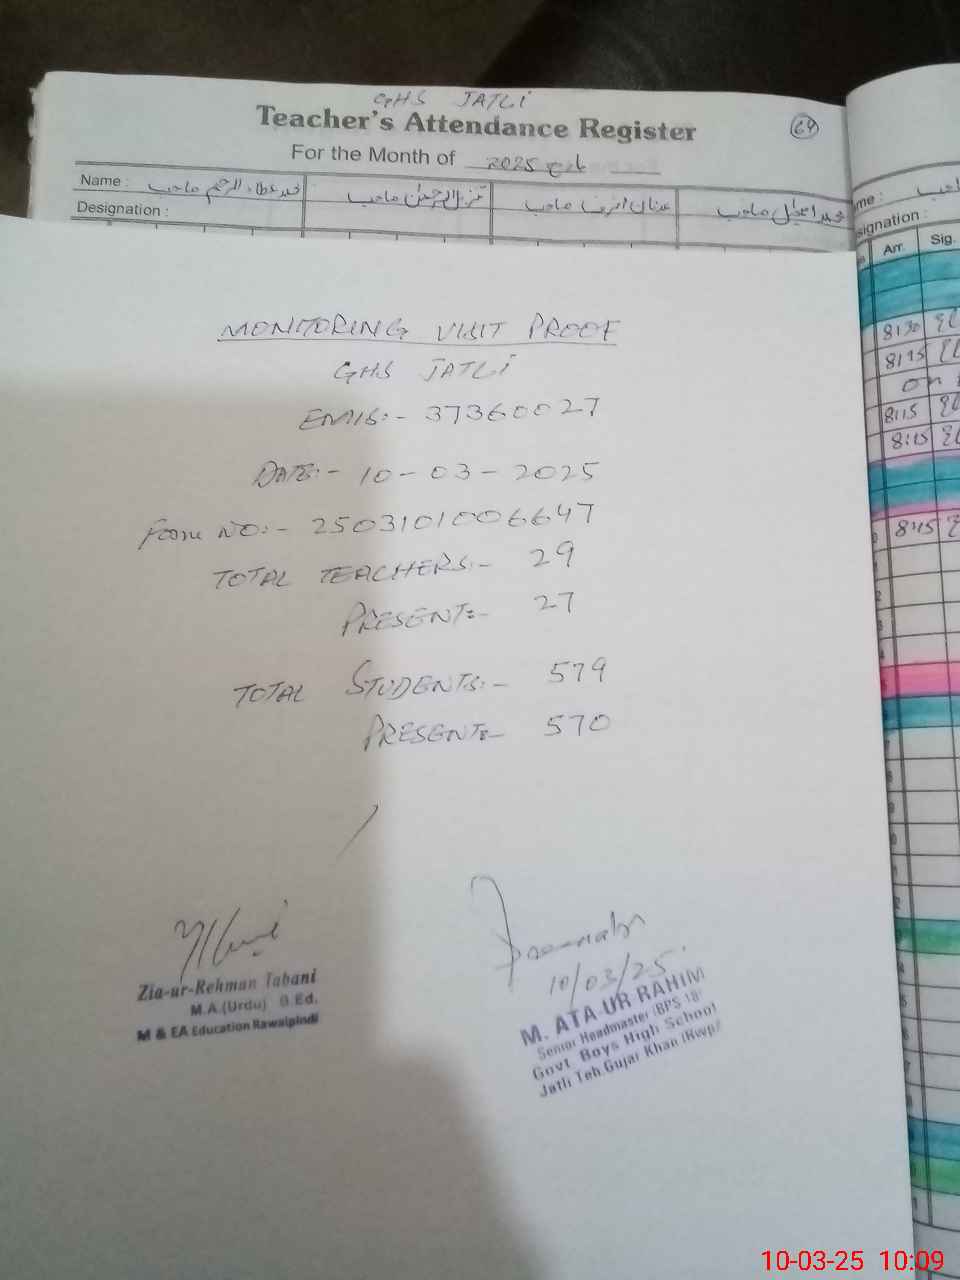 GHS JATLI
Teacher's Attendance Register
64
For the Month of مارچ 2025
Name : محمد عطاء الرحیم صاحب صاحب عدنان اشرف صاحب محمد اجمل صاحب
Designation :
me :
signation :
Arr. Sig.
8:30
8:15
on
8:15
8:15
8:15
MONITORING VISIT PROOF
GHS JATLI
EMIS:- 37360027
DATE:- 10-03-2025
Form NO:- 2503101006647
TOTAL TEACHERS:- 29
PRESENT:- 27
TOTAL STUDENTS:- 579
PRESENT:- 570
10/03/25
Zia-ur-Rehman Tabani
M.A.(Urdu) B.Ed.
M & EA Education Rawalpindi
M. ATA-UR RAHIM
Senior Headmaster (BPS 18)
Govt. Boys High School
Jatli Teh.Gujar Khan (Rwp)
10-03-25 10:09